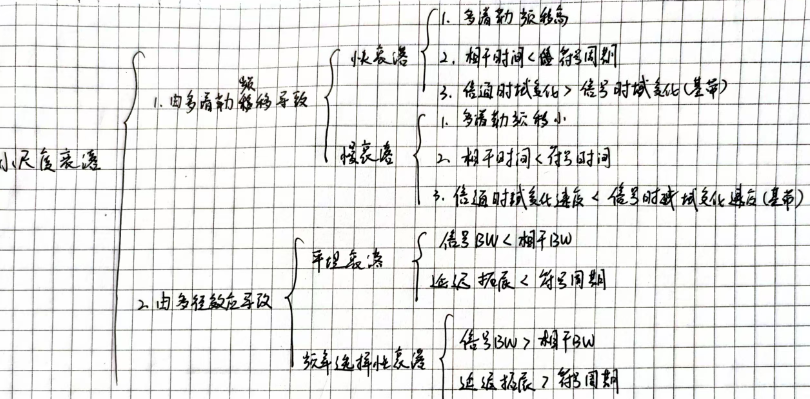 小尺度衰落
1. 由多普勒频移导致
快衰落
1. 多普勒频移高
2. 相干时间<符号周期
3. 信道时域变化>信号时域变化(基带)
慢衰落
1. 多普勒频移小
2. 相干时间<符号时间
3. 信道时域变化速度<信号时域变化速度(基带)
2. 由多径效应导致
平坦衰落
信号BW<相干BW
延迟拓展<符号周期
频率选择性衰落
信号BW>相干BW
延迟拓展>符号周期